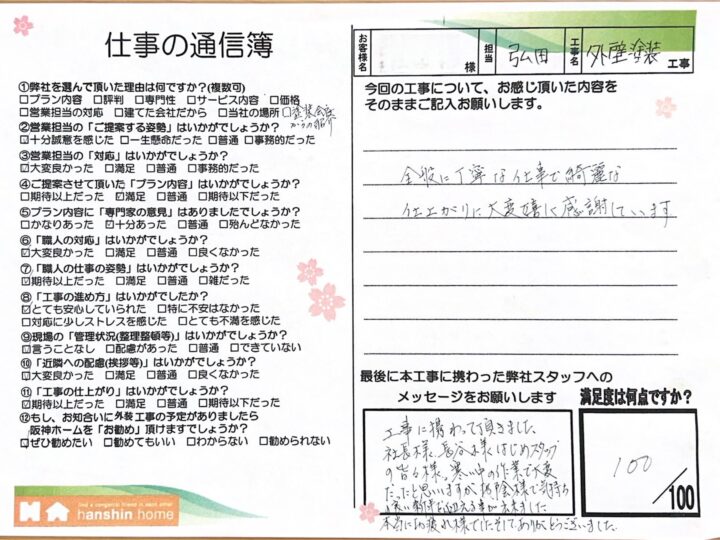 仕事の通信簿
①弊社を選んで頂いた理由は何ですか?(複数可)
□プラン内容 □評判 □専門性 □サービス内容 □価格
□営業担当の対応 □建てた会社だから □当社の場所 □塗装会社からの紹介
②営業担当の「ご提案する姿勢」はいかがでしょうか?
☑十分誠意を感じた □一生懸命だった □普通 □事務的だった
③営業担当の「対応」はいかがでしょうか?
☑大変良かった □満足 □普通 □事務的だった
④ご提案させて頂いた「プラン内容」はいかがでしょうか?
□期待以上だった ☑満足だった □普通 □期待以下だった
⑤プラン内容に「専門家の意見」はありましたでしょうか?
□かなりあった ☑十分あった □普通 □殆んどなかった
⑥「職人の対応」はいかがでしょうか?
☑大変良かった □満足 □普通 □良くなかった
⑦「職人の仕事の姿勢」はいかがでしょうか?
☑期待以上だった □満足 □普通 □雑だった
⑧「工事の進め方」はいかがでしたか?
☑とても安心していられた □特に不安はなかった
□対応に少しストレスを感じた □とても不満を感じた
⑨現場の「管理状況(整理整頓等)」はいかがでしょうか?
☑言うことなし □配慮があった □普通 □できていない
⑩「近隣への配慮(挨拶等)」はいかがでしょうか?
☑大変良かった □満足 □普通 □良くなかった
⑪「工事の仕上がり」はいかがでしょうか?
☑期待以上だった □満足 □普通 □期待以下だった
⑫もし、お知合いに外装工事の予定がありましたら
阪神ホームを「お勧め」頂けますでしょうか?
☑ぜひ勧めたい □勧めてもいい □わからない □勧められない
find a congenial friend in each other
hanshin home
お客様名 様 担当 弘田 工事名 外壁塗装 工事
今回の工事について、お感じ頂いた内容を
そのままご記入お願いします。
全般に丁寧な仕事で綺麗な
仕上がりに大変嬉しく感謝しています
最後に本工事に携わった弊社スタッフへの
メッセージをお願いします
工事に携わって頂きました
社長様、長谷様はじめスタッフ
の皆々様、暑い中の作業で大変
だったと思いますが お陰様で気持ち
良い新年を迎える事が出来ました
本当にお疲れ様でした そして ありがとうございました。
満足度は何点ですか?
100
/100